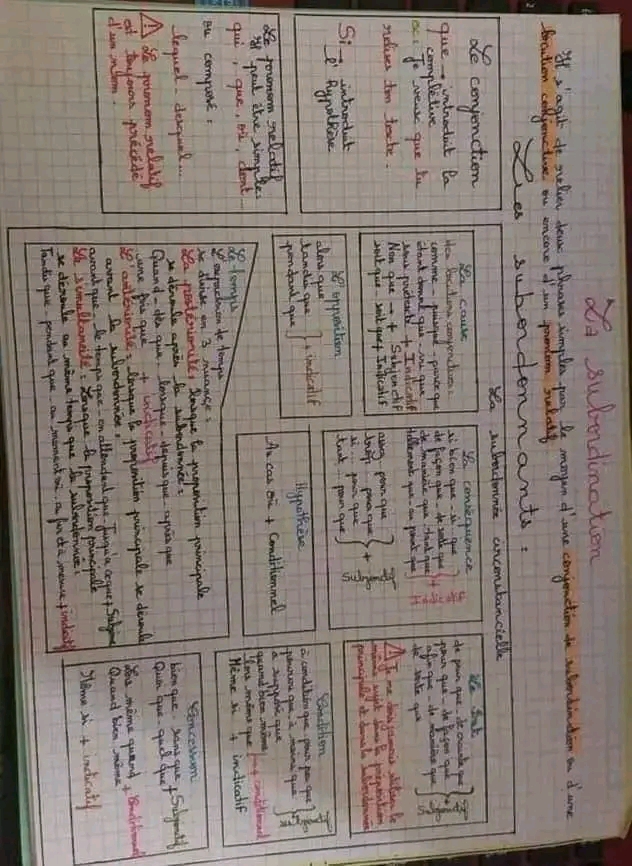 La subordination
Il s'agit de relier deux phrases simples par le moyen d'une conjonction de subordination ou d'une
locution conjonctive ou encore d'un pronom relatif
Les subordonnants :
La conjonction
que → introduit la
complétive
ex: Je veux que tu
relises ton texte.
Si → introduit
l'hypothèse
Le pronom relatif
Il peut être simple:
qui, que, où, dont...
ou composé :
lequel - duquel...
⚠ Le pronom relatif
est toujours précédé
d'un nom.
La subordonnée circonstancielle
La cause
les locutions conjonctives :
comme - puisque - parce que
étant donné que - vu que
sous prétexte + Indicatif
Non que + Subjonctif
soit que - soit que + Indicatif
L'opposition
alors que
tandis que
pendant que } + indicatif
Le temps
L'expression de temps
se divise en 3 nuances :
La postériorité : lorsque la proposition principale
se déroule après la subordonnée :
Quand - dès que - lorsque - depuis que - après que
une fois que + indicatif
L'antériorité : lorsque la proposition principale se déroule
avant la subordonnée :
avant que - le temps que - en attendant que - Jusqu'à ce que +
La simultanéité : Lorsque la proposition principale
se déroule au même temps que la subordonnée :
Tandis que - pendant que - au moment où - au fur et à mesure + indicatif
La conséquence
si bien que - si que
de façon que - de sorte que
de manière que - tant que
tellement que - au point que
assez pour que
trop - pour que
si ... pour que
tant - pour que } + Subjonctif
Hypothèse
Au cas où + Conditionnel
Le but
de peur que - de crainte que
pour que - de façon que
afin que - de manière que
de sorte que
⚠ Je ne dois jamais utiliser le
même sujet dans la proposition
principale et dans la subordonnée
Condition
à condition que - pour peu que
pourvu que - à moins que
à supposer que
quand bien même
lors même que + conditionnel
Même si + indicatif
Concession
bien que - sans que
Quoi que - quel que + Subjonctif
Lors même quand
Quand bien même + Conditionnel
Même si + indicatif